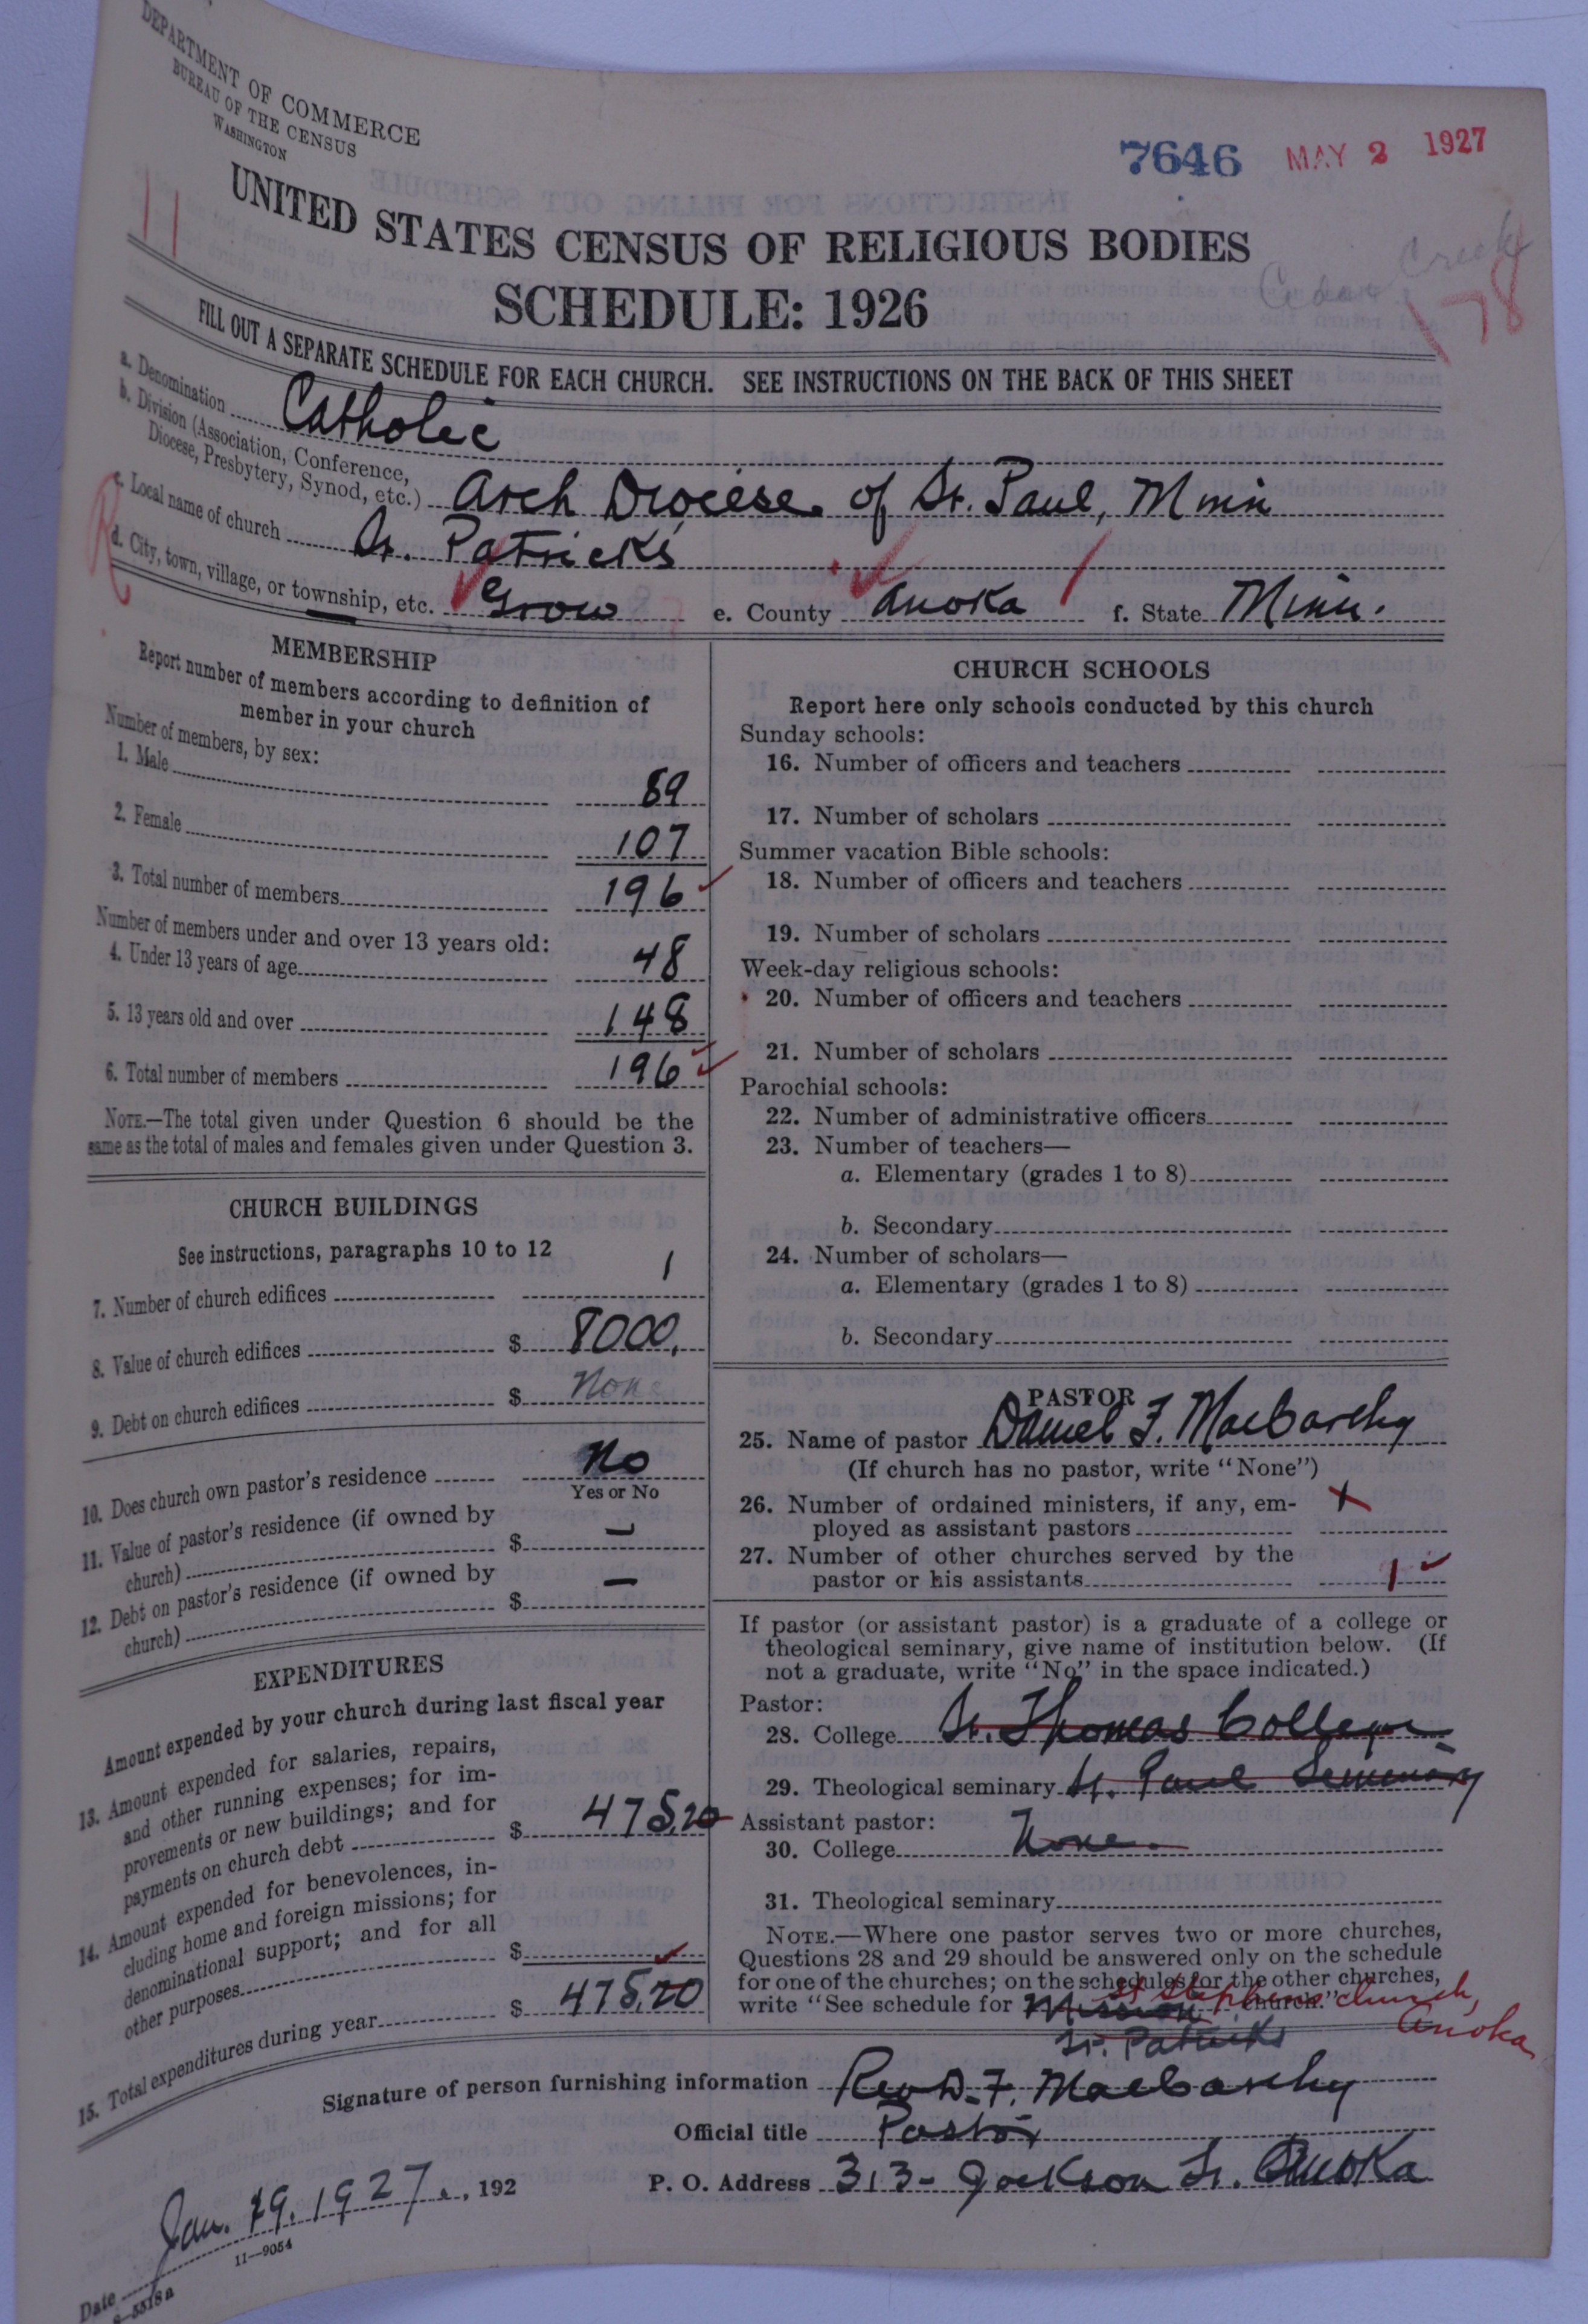 DEPARTMENT OF COMMERCE
BUREAU OF THE CENSUS
WASHINGTON
7646 MAY 2 1927
11
UNITED STATES CENSUS OF RELIGIOUS BODIES
SCHEDULE: 1926
Cedar Creek
178
FILL OUT A SEPARATE SCHEDULE FOR EACH CHURCH. SEE INSTRUCTIONS ON THE BACK OF THIS SHEET
a. Denomination Catholic
b. Division (Association, Conference,
Diocese, Presbytery, Synod, etc.) Arch Diocese of St. Paul, Minn
c. Local name of church St. Patricks
R
d. City, town, village, or township, etc. Grow e. County Anoka f. State Minn.
MEMBERSHIP
Report number of members according to definition of
member in your church
Number of members, by sex:
1. Male 89
2. Female 107
3. Total number of members 196
Number of members under and over 13 years old:
4. Under 13 years of age 48
5. 13 years old and over 148
6. Total number of members 196
NOTE.—The total given under Question 6 should be the
same as the total of males and females given under Question 3.
CHURCH BUILDINGS
See instructions, paragraphs 10 to 12
7. Number of church edifices 1
8. Value of church edifices $ 8000.
9. Debt on church edifices $ None
10. Does church own pastor's residence No
Yes or No
11. Value of pastor's residence (if owned by
church) $ —
12. Debt on pastor's residence (if owned by
church) $ —
EXPENDITURES
Amount expended by your church during last fiscal year
13. Amount expended for salaries, repairs,
and other running expenses; for im-
provements or new buildings; and for
payments on church debt $ 475.20
14. Amount expended for benevolences, in-
cluding home and foreign missions; for
denominational support; and for all
other purposes $
15. Total expenditures during year $ 475.20
CHURCH SCHOOLS
Report here only schools conducted by this church
Sunday schools:
16. Number of officers and teachers
17. Number of scholars
Summer vacation Bible schools:
18. Number of officers and teachers
19. Number of scholars
Week-day religious schools:
20. Number of officers and teachers
21. Number of scholars
Parochial schools:
22. Number of administrative officers
23. Number of teachers—
a. Elementary (grades 1 to 8)
b. Secondary
24. Number of scholars—
a. Elementary (grades 1 to 8)
b. Secondary
PASTOR
25. Name of pastor Daniel F. MacCarthy
(If church has no pastor, write "None")
26. Number of ordained ministers, if any, em-
ployed as assistant pastors x
27. Number of other churches served by the
pastor or his assistants 1
If pastor (or assistant pastor) is a graduate of a college or
theological seminary, give name of institution below. (If
not a graduate, write "No" in the space indicated.)
Pastor:
28. College St. Thomas College
29. Theological seminary St. Paul Seminary
Assistant pastor:
30. College None.
31. Theological seminary
NOTE.—Where one pastor serves two or more churches,
Questions 28 and 29 should be answered only on the schedule
for one of the churches; on the schedules for the other churches,
write "See schedule for Mission church."
St Stephens Church,
Anoka
St. Patricks
Signature of person furnishing information Rev D. F. MacCarthy
Official title Pastor
P. O. Address 313- Jackson St. Anoka
Date Jan. 19. 1927. , 192
11—9054